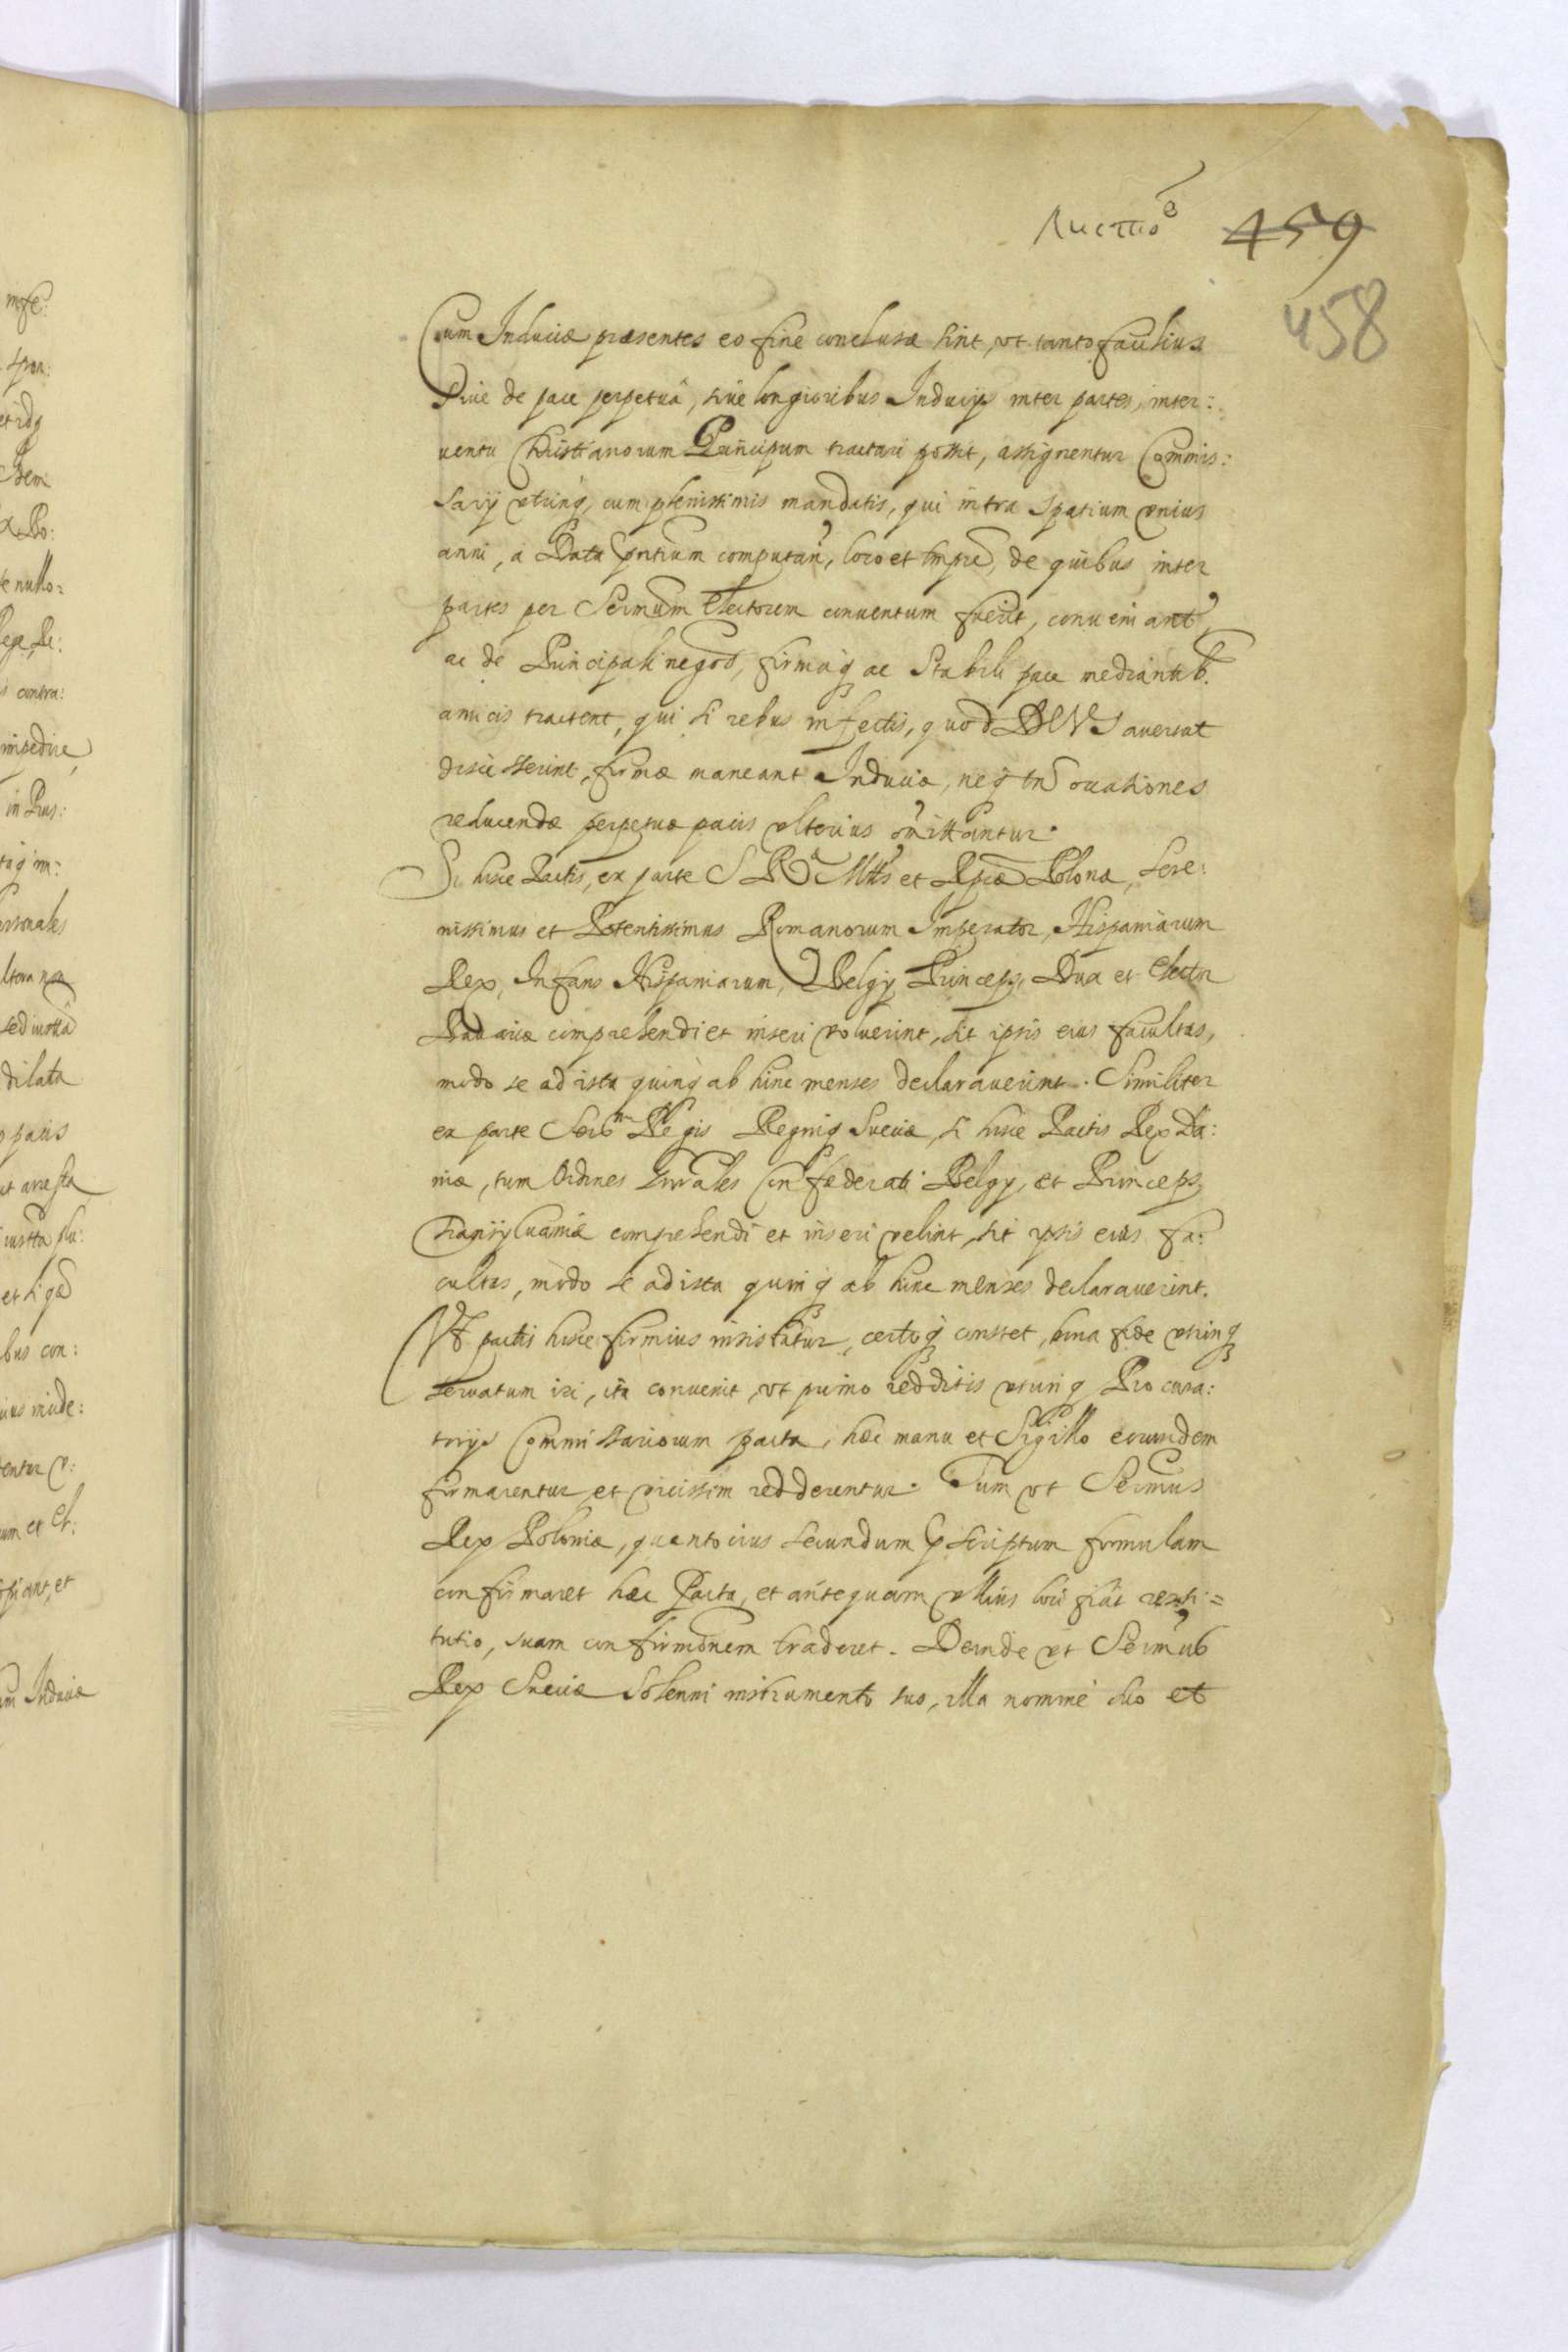 Листѡ҃в
459
458
Cum Induciæ præsentes eo fine conclusæ sint, vt tanto facilius
siue de pace perpetuâ, siue longioribus Inducijs inter partes, inter:
uentu Christianorum Principum tractari possit, assignentur Commis:
sarij vtrinq, cum plenissimis mandatis, qui intra spatium vnius
anni, a Data pntium computan, loco et tmpre, de quibus inter
partes per Sermum Electorem conuentum fuerit, conueniant,
ac de Principali negoo, firmaq ac stabili pace mediantib.
amicis tractent, qui si rebus infectis, quod DEVS auertat
discesserint, firmæ maneant Induciæ, neq tn
reducendæ perpetuæ pacis vlterius omittantur.
Si hisce Pactis, ex parte S R Mttis et Rpcæ Polonæ, Sere:
nissimus et Potentissimus Romanorum Imperator, Hispaniarum
Rex, Infans Hispaniarum, Belgij Princeps, Dux et Elector
Bauariæ comprehendi et inseri voluerint, sit ipsis eius facultas,
modo se ad ista quinq ab hinc menses declarauerint. Similiter
ex parte Sermi Regis Regniq Sueciæ, si hisce Pactis Rex Da:
niæ, tum Ordines grrales Confæderati Belgij, et Princeps
Transyluaniæ comprehendi et inseri velint, sit ipsis eius fa:
cultas, modo se ad ista quinq ab hinc menses declarauerint.
Vt pactis hisce firmius insistatur, certoq constet, bona fide vtrinq
seruatum iri, ita conuenit, vt primo redditis vtrinq Procura:
torijs Commissariorum pacta, hæc manu et Sigillo eorundem
firmarentur et vicissim redderentur. Tum vt Sermus
Rex Poloniæ, quanto cius secundum pscriptam formulam
confirmaret hæc Pacta, et antequam vllius loci fiat resti=
tutio, suam confirmonem traderet. Deinde vt Sermus
Rex Sueciæ Solenni instrumento suo, illa nomine suo et